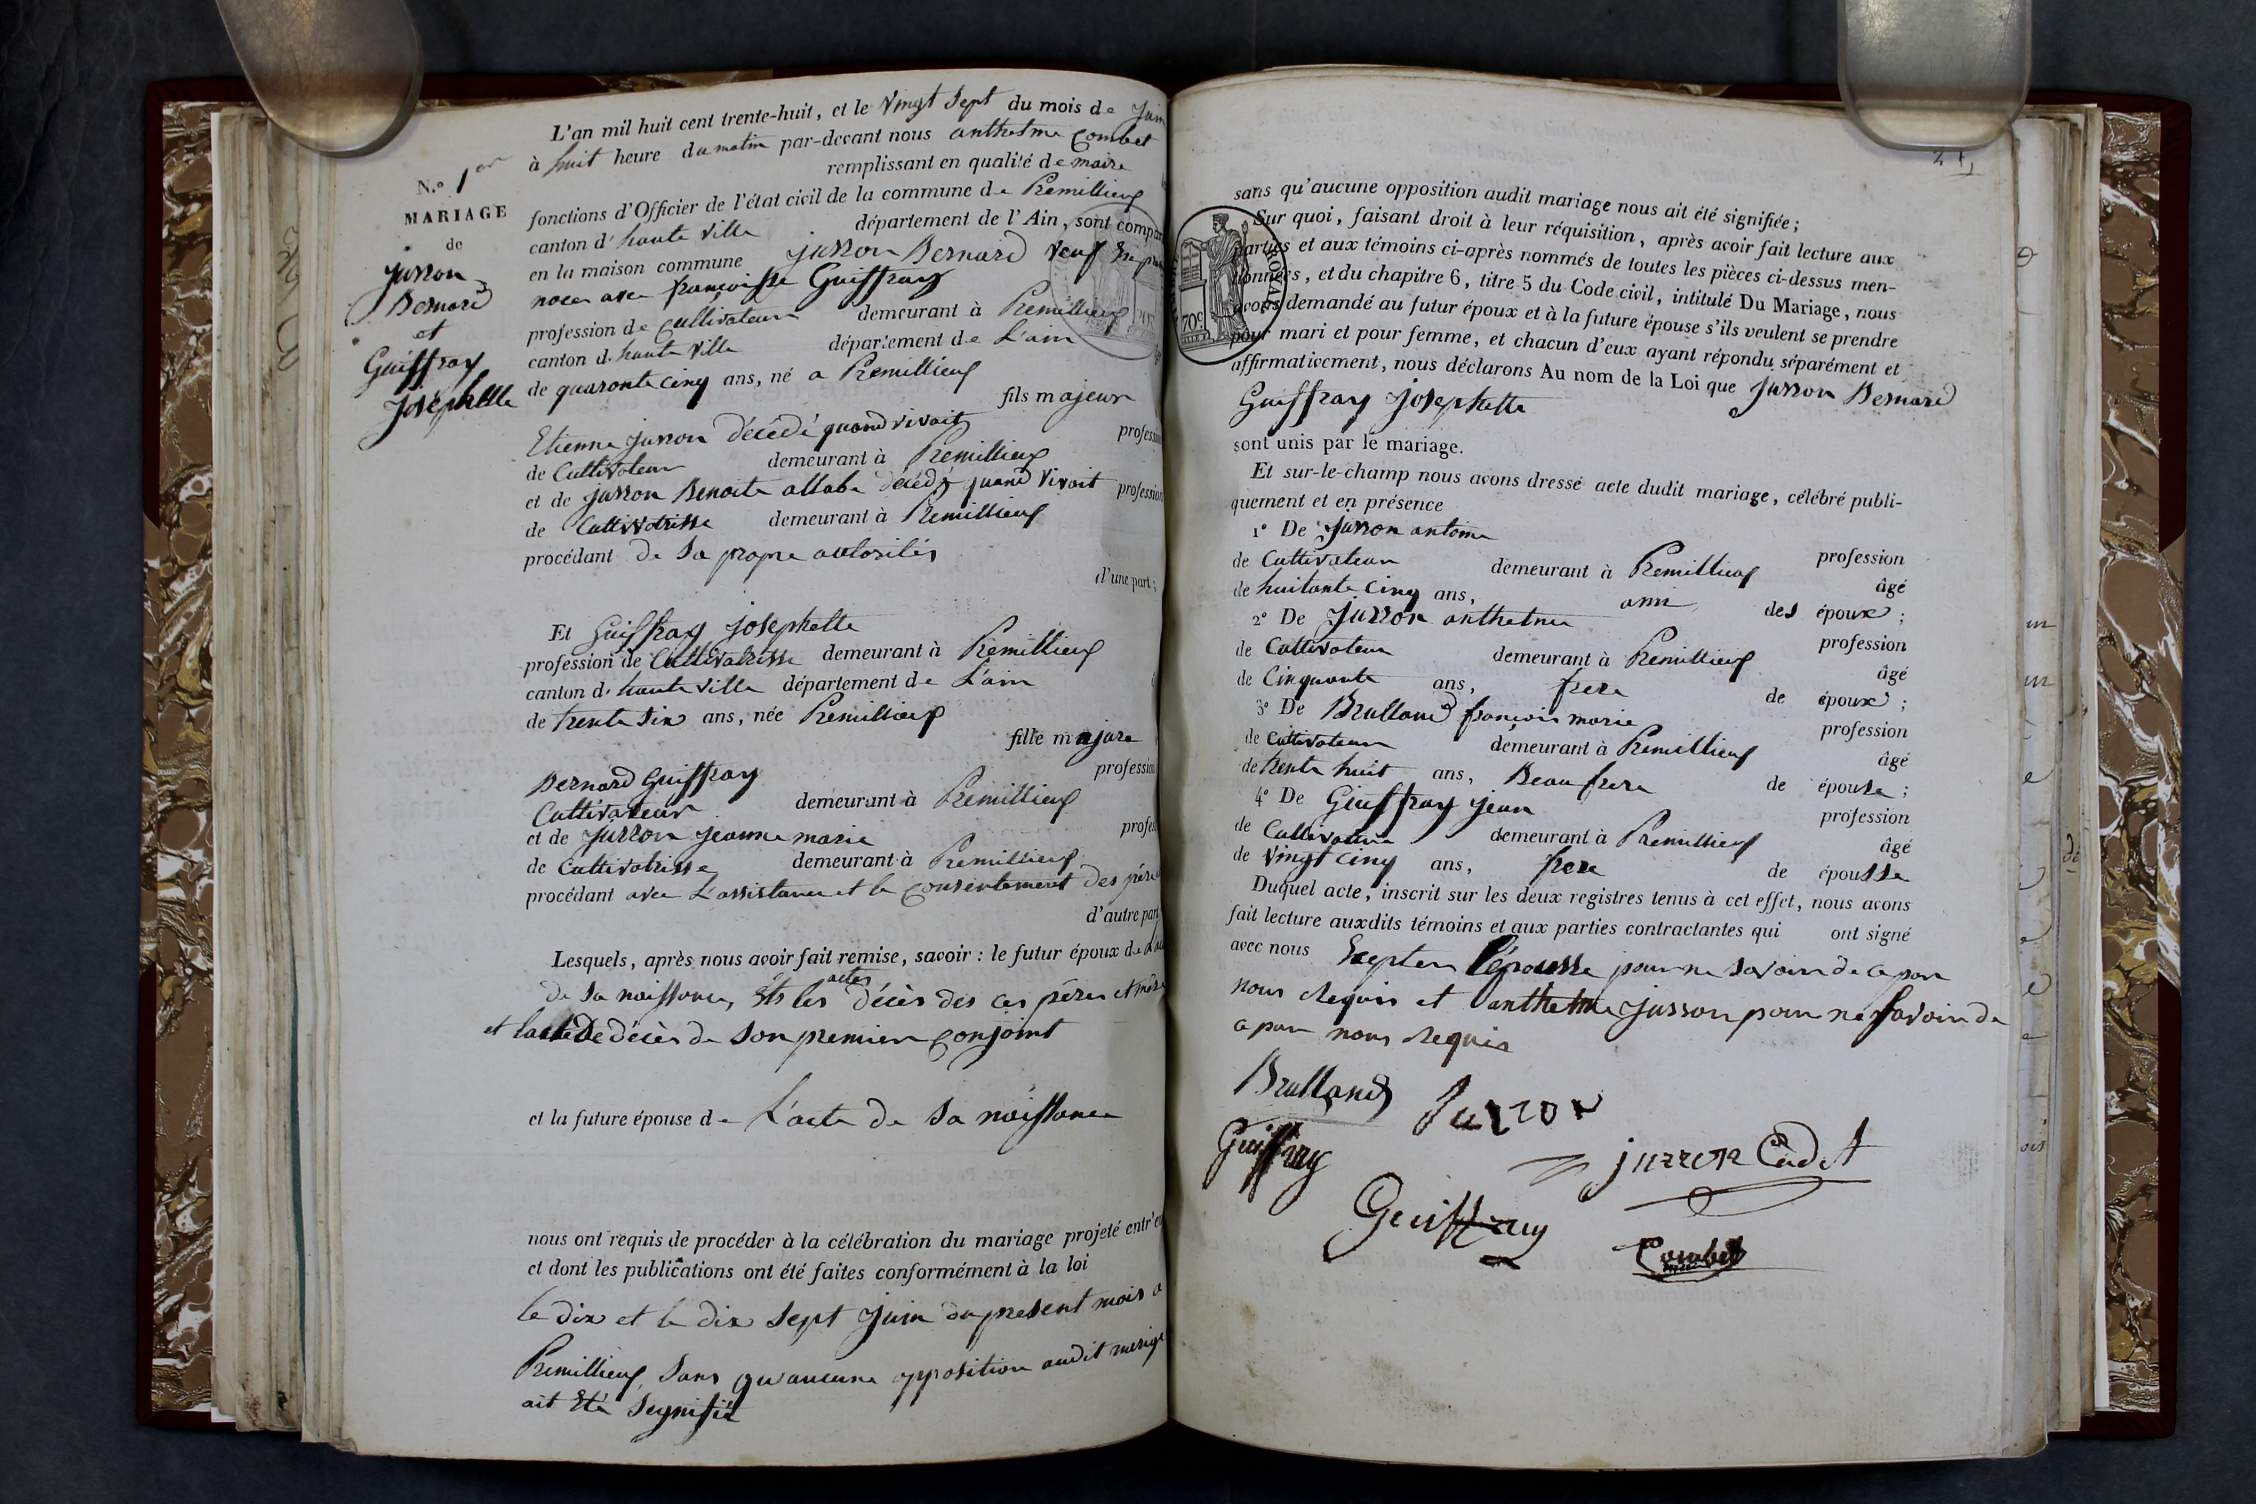 L'an mil huit cent trente-huit, et le vingt sept du mois de Juin
à huit heure du matin par-devant nous anthelme Combet
remplissant en qualité de maire
fonctions d'Officier de l'état civil de la commune de Premillieux
canton d' haute ville département de l'Ain, sont compar
en la maison commune juzzon Bernard veuf en
noces avec françoisse Guiffray
profession de Cultivateur demeurant à Premillieux
canton d. haute ville département de L'ain
de quarante cinq ans, né a Premillieux
fils majeur
Etienne juzzon décédé quand vivait profession
de Cultivateur demeurant à Premillieux
et de juzzon Benoite décédé quand vivait profession
de Cultivatrisse demeurant à Premillieux
procédant de sa propre autorités
d'une part;
N.o 1er
MARIAGE
de
juzzon
Bernard
et
Guiffray
josephette
Et Guiffray josephette
profession de Cultivatrisse demeurant à Premillieux
canton d. haute ville département de L'ain
de trente six ans, née Premillieux
fille majure
Bernard Guiffray profession
Cultivateur demeurant à Premillieux
et de juzzon jeanne marie profes
de Cultivatrisse demeurant à Premillieux
procédant avec L'assistance et le consentement des pére
d'autre part
Lesquels, après nous avoir fait remise, savoir : le futur époux de
de sa naissance, Ets les actes décès des ces péres et mére
et lacte De décès de son premier conjoint
et la future épouse d e L'acte de sa naissance
nous ont requis de procéder à la célébration du mariage projeté entr'eu
et dont les publications ont été faites conformément à la loi
le dix et le dix sept juin du present mois a
Premillieux, sans qu'aucune opposition audit marige
ait Eté segnifié
24
sans qu'aucune opposition audit mariage nous ait été signifiée;
Sur quoi, faisant droit à leur réquisition, après avoir fait lecture aux
parties et aux témoins ci-après nommés de toutes les pièces ci-dessus men-
tionnées, et du chapitre 6, titre 5 du Code civil, intitulé Du Mariage, nous
avons demandé au futur époux et à la future épouse s'ils veulent se prendre
pour mari et pour femme, et chacun d'eux ayant répondu séparément et
affirmativement, nous déclarons Au nom de la Loi que juzzon Bernard
Guiffray josephette
ROYAL
70c
sont unis par le mariage.
Et sur-le-champ nous avons dressé acte dudit mariage, célébré publi-
quement et en présence
1° De juzzon antoine profession
de Cultivateur demeurant à Premillieux âgé
de huitante cinq ans, ami des époux;
2° De juzzon anthelme profession
de Cultivateur demeurant à Premillieux âgé
de Cinquante ans, frere de époux;
3° De Brulland françois marie profession
de Cultivateur demeurant à Premillieux âgé
de trente huit ans, Beau frere de épouse;
4° De Guiffray jean profession
de Cultivateur demeurant à Premillieux âgé
de vingt cinq ans, frere de épousse
Duquel acte, inscrit sur les deux registres tenus à cet effet, nous avons
fait lecture auxdits témoins et aux parties contractantes qui ont signé
avec nous Excepter l'épousse pour ne savoir de ce par
nous Requis et anthelme juzzon pour ne savoir de
ce par nous Requis
Brulland juzzon
Guiffray juzzon Cadet
Guiffray
Combet